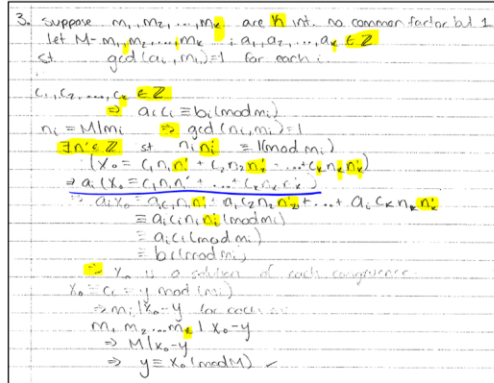 3. suppose m₁, m₂, ..., mₖ are k int. no common factor but 1
let M = m₁, m₂, ..., mₖ ; a₁, a₂, ..., aₖ ∈ ℤ
st gcd(aᵢ, mᵢ) = 1 for each i
c₁, c₂, ..., cₖ ∈ ℤ
⇒ aᵢcᵢ ≡ bᵢ(mod mᵢ)
nᵢ = M/mᵢ ⇒ gcd(nᵢ, mᵢ) = 1
∃n' ∈ ℤ st nᵢnᵢ' ≡ 1(mod mᵢ)
(x₀ = c₁n₁n₁' + c₂n₂n₂' + ... + cₖnₖnₖ')
⇒ aᵢ(x₀ = c₁n₁n₁' + ... + cₖnₖnₖ')
⇒ aᵢx₀ = aᵢc₁n₁n₁' + aᵢc₂n₂n₂' + ... + aᵢcₖnₖnₖ'
≡ aᵢcᵢnᵢnᵢ' (mod mᵢ)
≡ aᵢcᵢ(mod mᵢ)
≡ bᵢ(mod mᵢ)
⇒ x₀ is a solution of each congruence
x₀ ≡ cᵢ ≡ y mod (mᵢ)
⇒ mᵢ | x₀-y for each i
m₁ m₂ ... mₖ | x₀-y
⇒ M | x₀-y
⇒ y ≡ x₀ (mod M) ✓